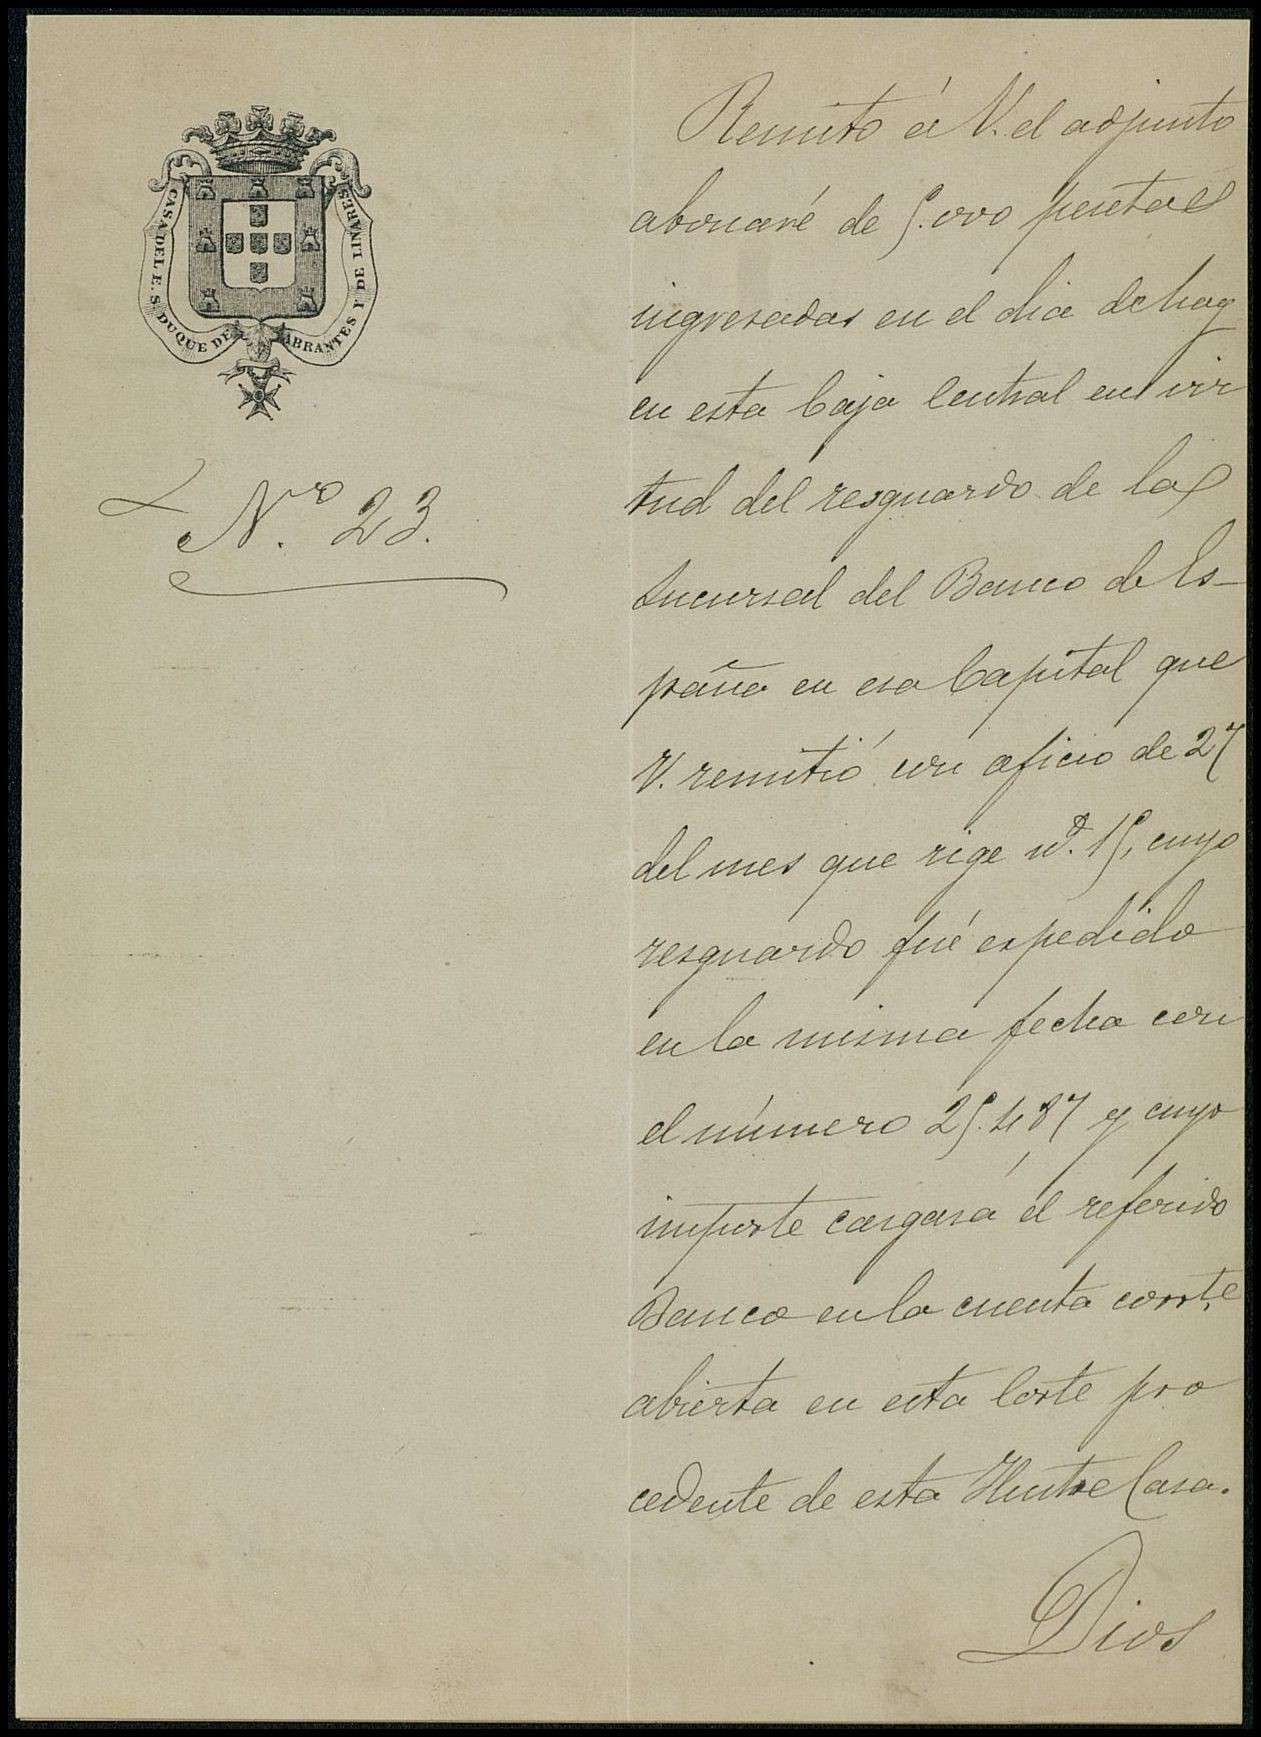 CASA DEL E. S. DUQUE DE ABRANTES Y DE LINARES
N.ro 23.
Remito á V. el adjunto
abonaré de 5.000 pesetas
ingresadas en el dia de hoy
en esta Caja Central en vir
tud del resguardo de la
Sucursal del Banco de Es-
paña en esa Capital que
V. remitió con oficio de 27
del mes que rige nº. 15, cuyo
resguardo fué espedido
en la misma fecha con
el número 25.487 y cuyo
importe cargará el referido
Banco en la cuenta corr.te
abierta en esta Corte pro
cedente de esta Ilustre Casa.
Dios